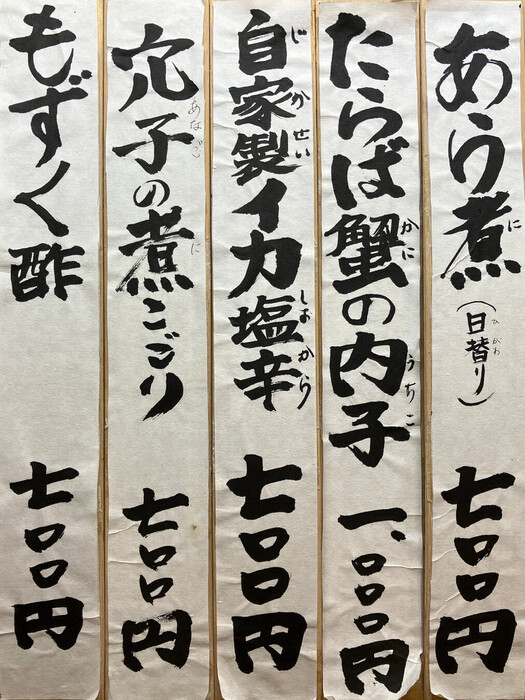 あら煮（日替り）七〇〇円
たらば蟹の内子 一、〇〇〇円
自家製イカ塩辛 七〇〇円
穴子の煮こごり 七〇〇円
もずく酢 七〇〇円
に
ひがわ
かに
うちこ
じかせい
しおから
あなご
に